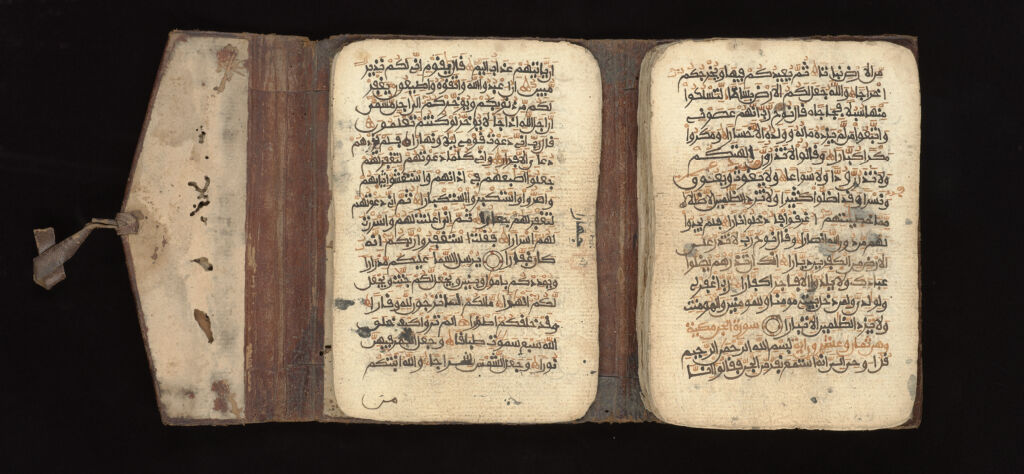 ان ياتيهم عذاب اليم قال يقوم اني لكم نذير
مبين ان اعبدوا الله واتقوه واطيعون يغفر
لكم من ذنوبكم ويوخركم الى اجل مسمى
ان اجل الله اذا جا لا يوخر لو كنتم تعلمون
قال رب اني دعوت قومي ليلا ونهارا فلم يزدهم
دعاي الا فرارا واني كلما دعوتهم لتغفر لهم
جعلوا اصبعهم في اذانهم واستغشوا ثيابهم
واصروا واستكبروا استكبارا ثم اني دعوتهم
لتغفر لهم ثم اني اعلنت لهم واسررت
جهارا
لهم اسرارا فقلت استغفروا ربكم انه
كان غفارا يرسل السما عليكم مدرارا
ويمددكم باموال وبنين ويجعل لكم جنت ويجعل
لكم انهرا ما لكم لا ترجون لله وقارا
وقد خلقكم اطوارا الم تروا كيف خلق
الله سبع سموت طباقا وجعل القمر فيهن
نورا وجعل الشمس سراجا والله انبتكم
من
من الارض نباتا ثم يعيدكم فيها ويخرجكم
اخراجا والله جعل لكم الارض بساطا لتسلكوا
منها سبلا فجاجا قال نوح رب انهم عصوني
واتبعوا من لم يزده ماله وولده الا خسارا ومكروا
مكرا كبارا وقالوا لا تذرن الهتكم
ولا تذرن ودا ولا سواعا ولا يغوث ويعوق
ونسرا وقد اضلوا كثيرا ولا تزد الظلمين الا ضللا
مما خطيئتهم اغرقوا فادخلوا نارا فلم يجدوا
لهم من دون الله انصارا وقال نوح رب لا تذر على
الارض من الكفرين ديارا انك ان تذرهم يضلوا
عبادك ولا يلدوا الا فاجرا كفارا رب اغفر لي
ولولدي ولمن دخل بيتي مومنا وللمومنين والمومنت
ولا تزد الظلمين الا تبارا سورة الجن مكية
وهي ثمان وعشرون اية بسم الله الرحمن الرحيم
قل اوحي الي انه استمع نفر من الجن فقالوا انا